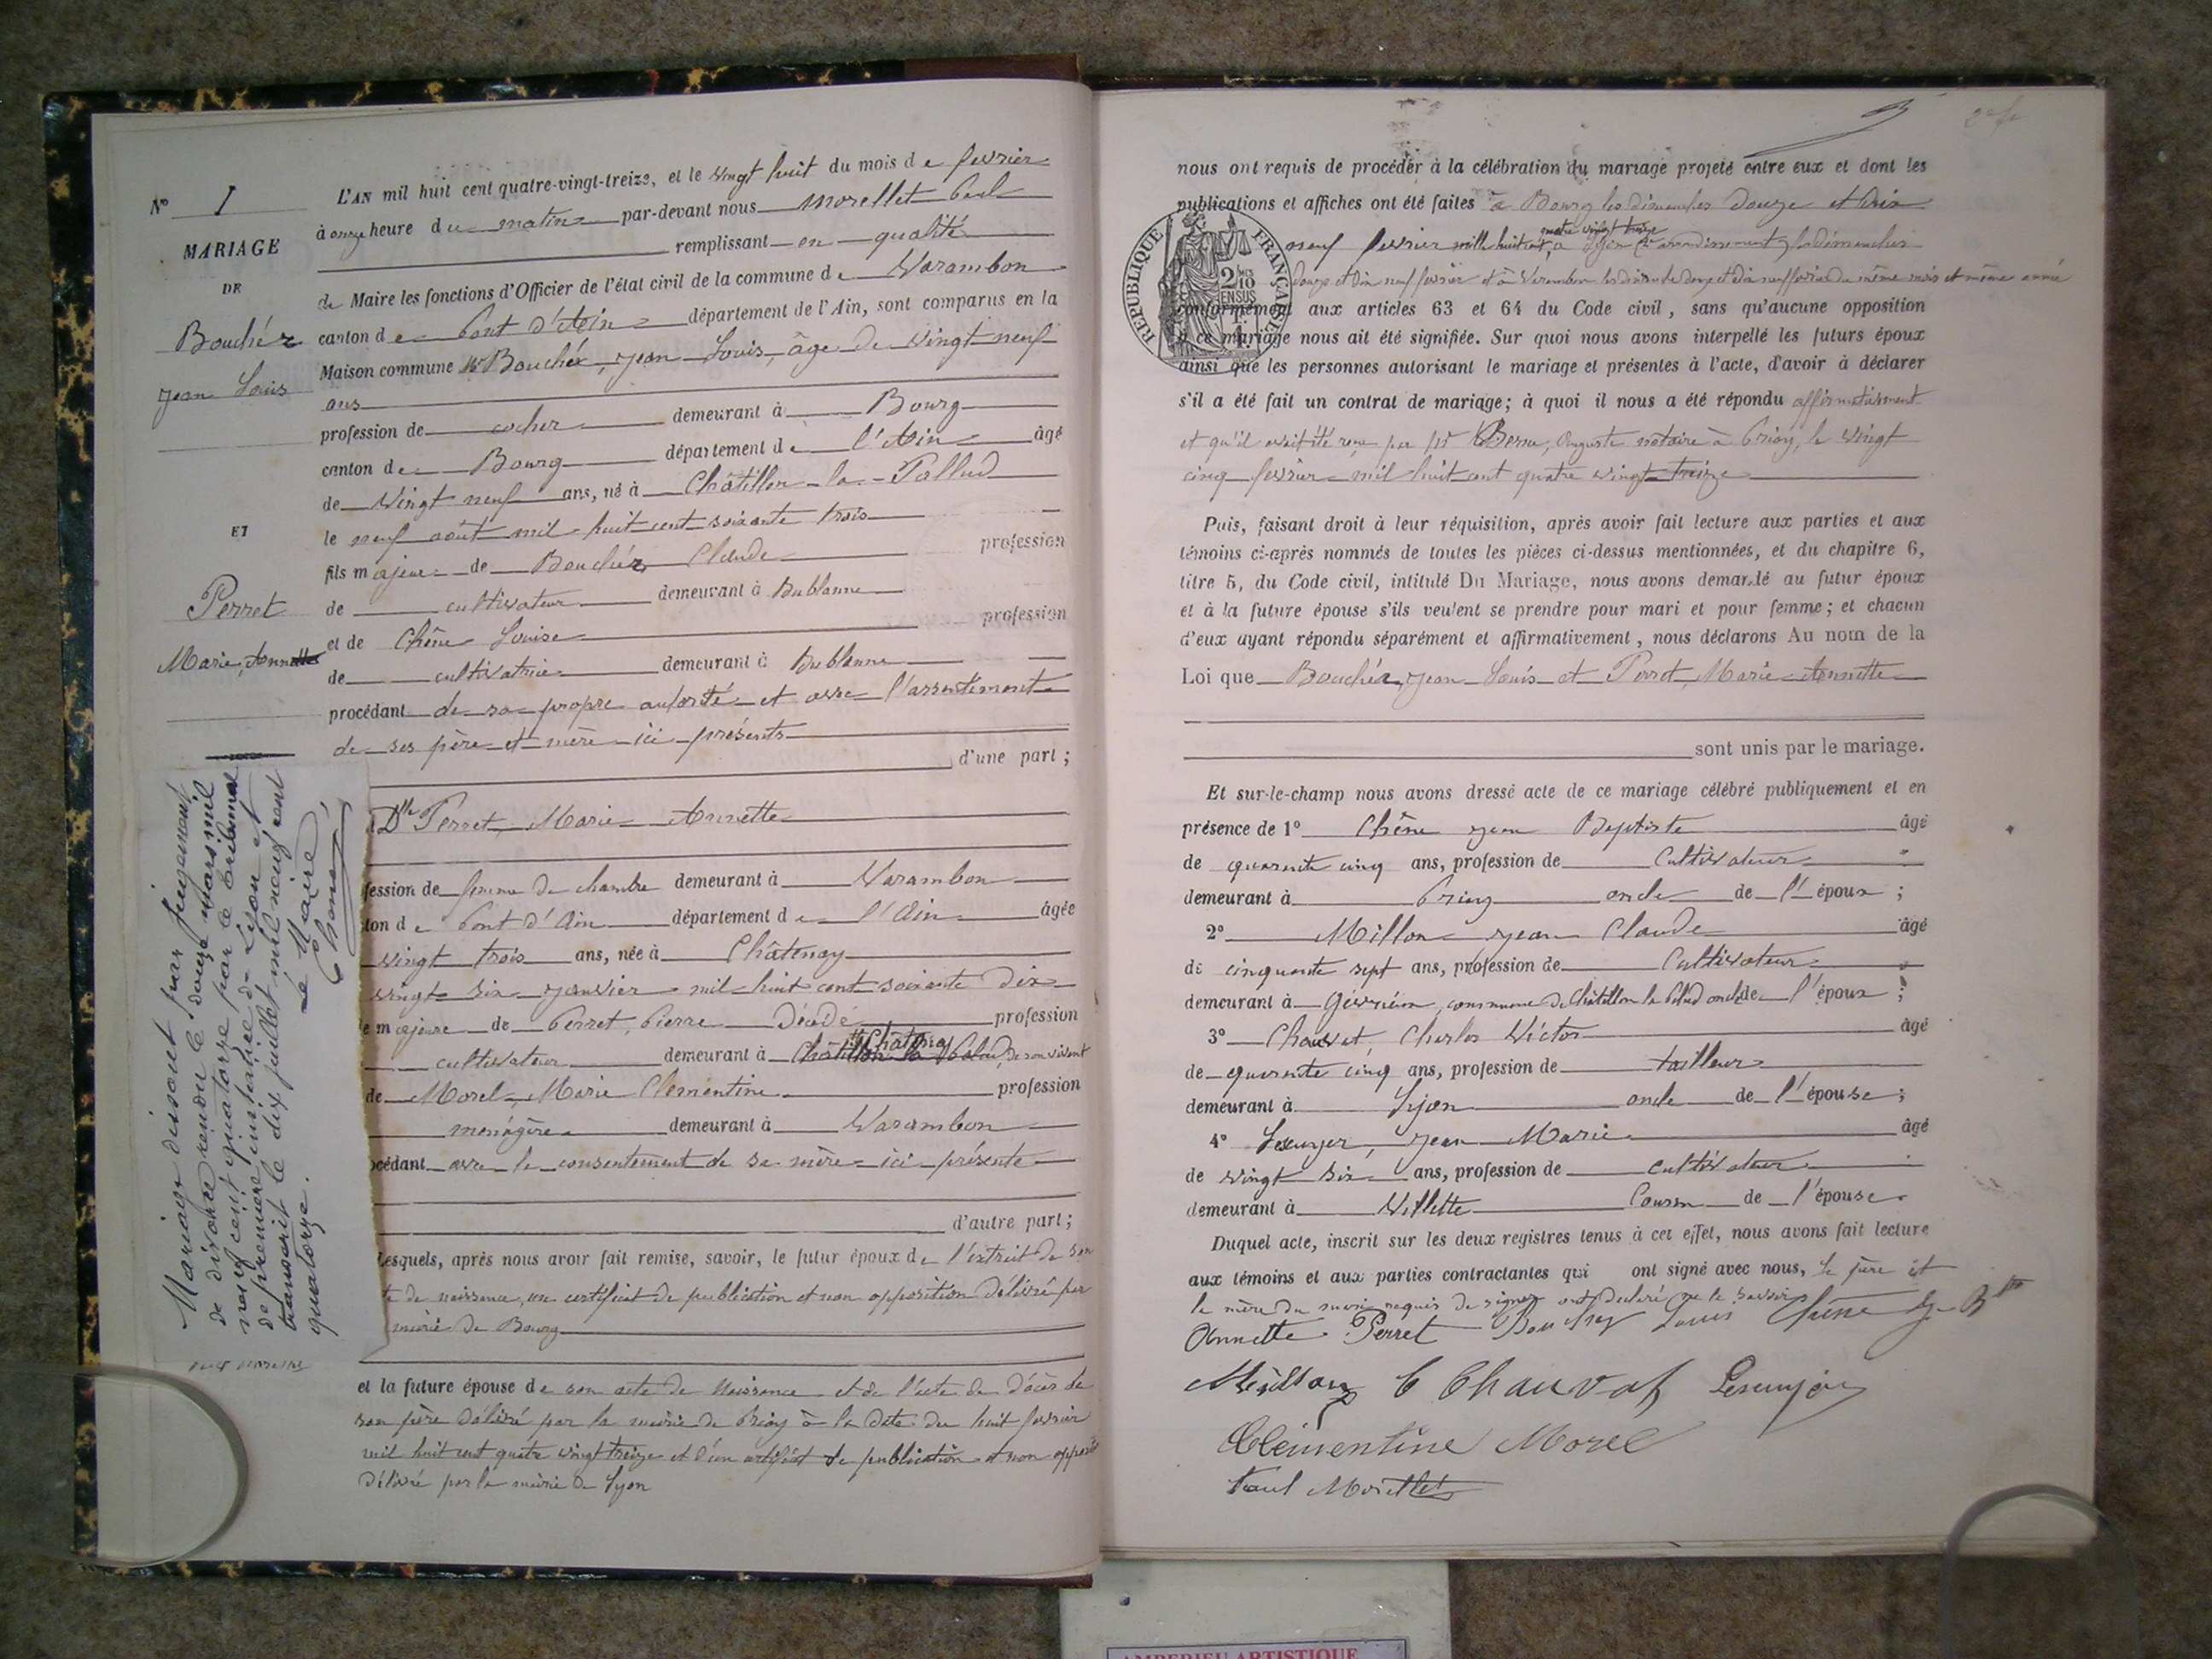 N° 1
MARIAGE
DE
Bouchéz
Jean Louis
ET
Perret
Marie, Annette
Mariage dissout par jugement
de divorce rendu le douze mars mil
neuf cent quatorze par le tribunal
de première instance de Lyon et
transcrit le dix juillet mil neuf cent
quatorze.
Le Maire,
L'AN mil huit cent quatre-vingt-treize, et le vingt huit du mois de fevrier
à onze heure du matin par-devant nous Morellet Paul
remplissant en qualité
de Maire les fonctions d'Officier de l'état civil de la commune de Varambon
canton de Pont d'Ain département de l'Ain, sont comparus en la
Maison commune Mr Bouchéz, Jean Louis, âge de vingt neuf
ans
profession de cocher demeurant à Bourg
canton de Bourg département de l'Ain âgé
de vingt neuf ans, né à Châtillon-la-Pallud
le neuf août mil huit cent soixante trois
fils majeur de Bouchéz Claude profession
de cultivateur demeurant à Dublanne
et de Chêne Louise profession
de cultivatrice demeurant à Dublanne
procédant de sa propre autorité et avec l'assentiment
de ses père et mère ici présents
d'une part;
Dlle Perret, Marie Annette
fession de femme de chambre demeurant à Varambon
ton de Pont d'Ain département de l'Ain âgée
vingt trois ans, née à Châtenay
vingt six janvier mil huit cent soixante dix
e majeure de Perret, Pierre Décédé profession
cultivateur demeurant à Châtillon la Palud Châtenay de son vivant
de Morel, Marie Clementine profession
menágère demeurant à Varambon
océdant avec le consentement de sa mère ici présente
d'autre part;
Lesquels, après nous avoir fait remise, savoir, le futur époux de l'extrait de son
te de naissance, un certificat de publication et non opposition délivré par
mairie de Bourg
et la future épouse de son acte de Naissance et de l'acte de décès de
son père délivré par la mairie de Priay à la date du huit fevrier
mil huit cent quatre vingt treize et d'un certificat de publication et non opposit
délivré par la mairie de Lyon
nous ont requis de procéder à la célébration du mariage projeté entre eux et dont les
publications et affiches ont été faites à Bourg les dimanches douze et dix
neuf fevrier mille huit cent quatre vingt treize, à Lyon (2e arrondissement) les dimanches
douze et dix neuf fevrier et à Varambon les dimanche douze et dix neuf fevrier du même mois et même année
RÉPUBLIQUE FRANÇAISE
2/10 EN SUS
conformément aux articles 63 et 64 du Code civil, sans qu'aucune opposition
à ce mariage nous ait été signifiée. Sur quoi nous avons interpellé les futurs époux
ainsi que les personnes autorisant le mariage et présentes à l'acte, d'avoir à déclarer
s'il a été fait un contrat de mariage; à quoi il nous a été répondu affirmativement
et qu'il avait été reçu par Mr Auguste notaire à Priay, le vingt
cinq fevrier mil huit cent quatre vingt treize
Puis, faisant droit à leur réquisition, après avoir fait lecture aux parties et aux
témoins ci-après nommés de toutes les pièces ci-dessus mentionnées, et du chapitre 6,
titre 5, du Code civil, intitulé Du Mariage, nous avons demandé au futur époux
et à la future épouse s'ils veulent se prendre pour mari et pour femme; et chacun
d'eux ayant répondu séparément et affirmativement, nous déclarons Au nom de la
Loi que Bouchéz, Jean Louis et Perret, Marie Annette
sont unis par le mariage.
Et sur-le-champ nous avons dressé acte de ce mariage célébré publiquement et en
présence de 1° Chêne Jean Baptiste âgé
de quarante cinq ans, profession de Cultivateur
demeurant à Priay oncle de l'époux;
2° Millon Jean Claude âgé
de cinquante sept ans, profession de Cultivateur
demeurant à Gévrieux, commune de Châtillon la Palud oncle de l'époux;
3° Chauvat, Charles Victor âgé
de quarente cinq ans, profession de tailleur
demeurant à Lyon oncle de l'épouse;
4° Jean Marie âgé
de vingt six ans, profession de cultivateur
demeurant à Villette Cousin de l'épouse
Duquel acte, inscrit sur les deux registres tenus à cet effet, nous avons fait lecture
aux témoins et aux parties contractantes qui ont signé avec nous, le père et
la mère du marié requis de signer ont déclaré ne le savoir
Annette Perret Bouchez Louis Chêne J. Bte
Millon C Chauvat
Clémentine Morel
Paul Morellet
AMBERIEU ARTISTIQUE